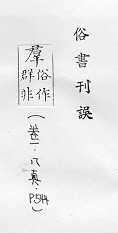 俗書刊誤
羣俗作群非
(卷一·八真·P544)